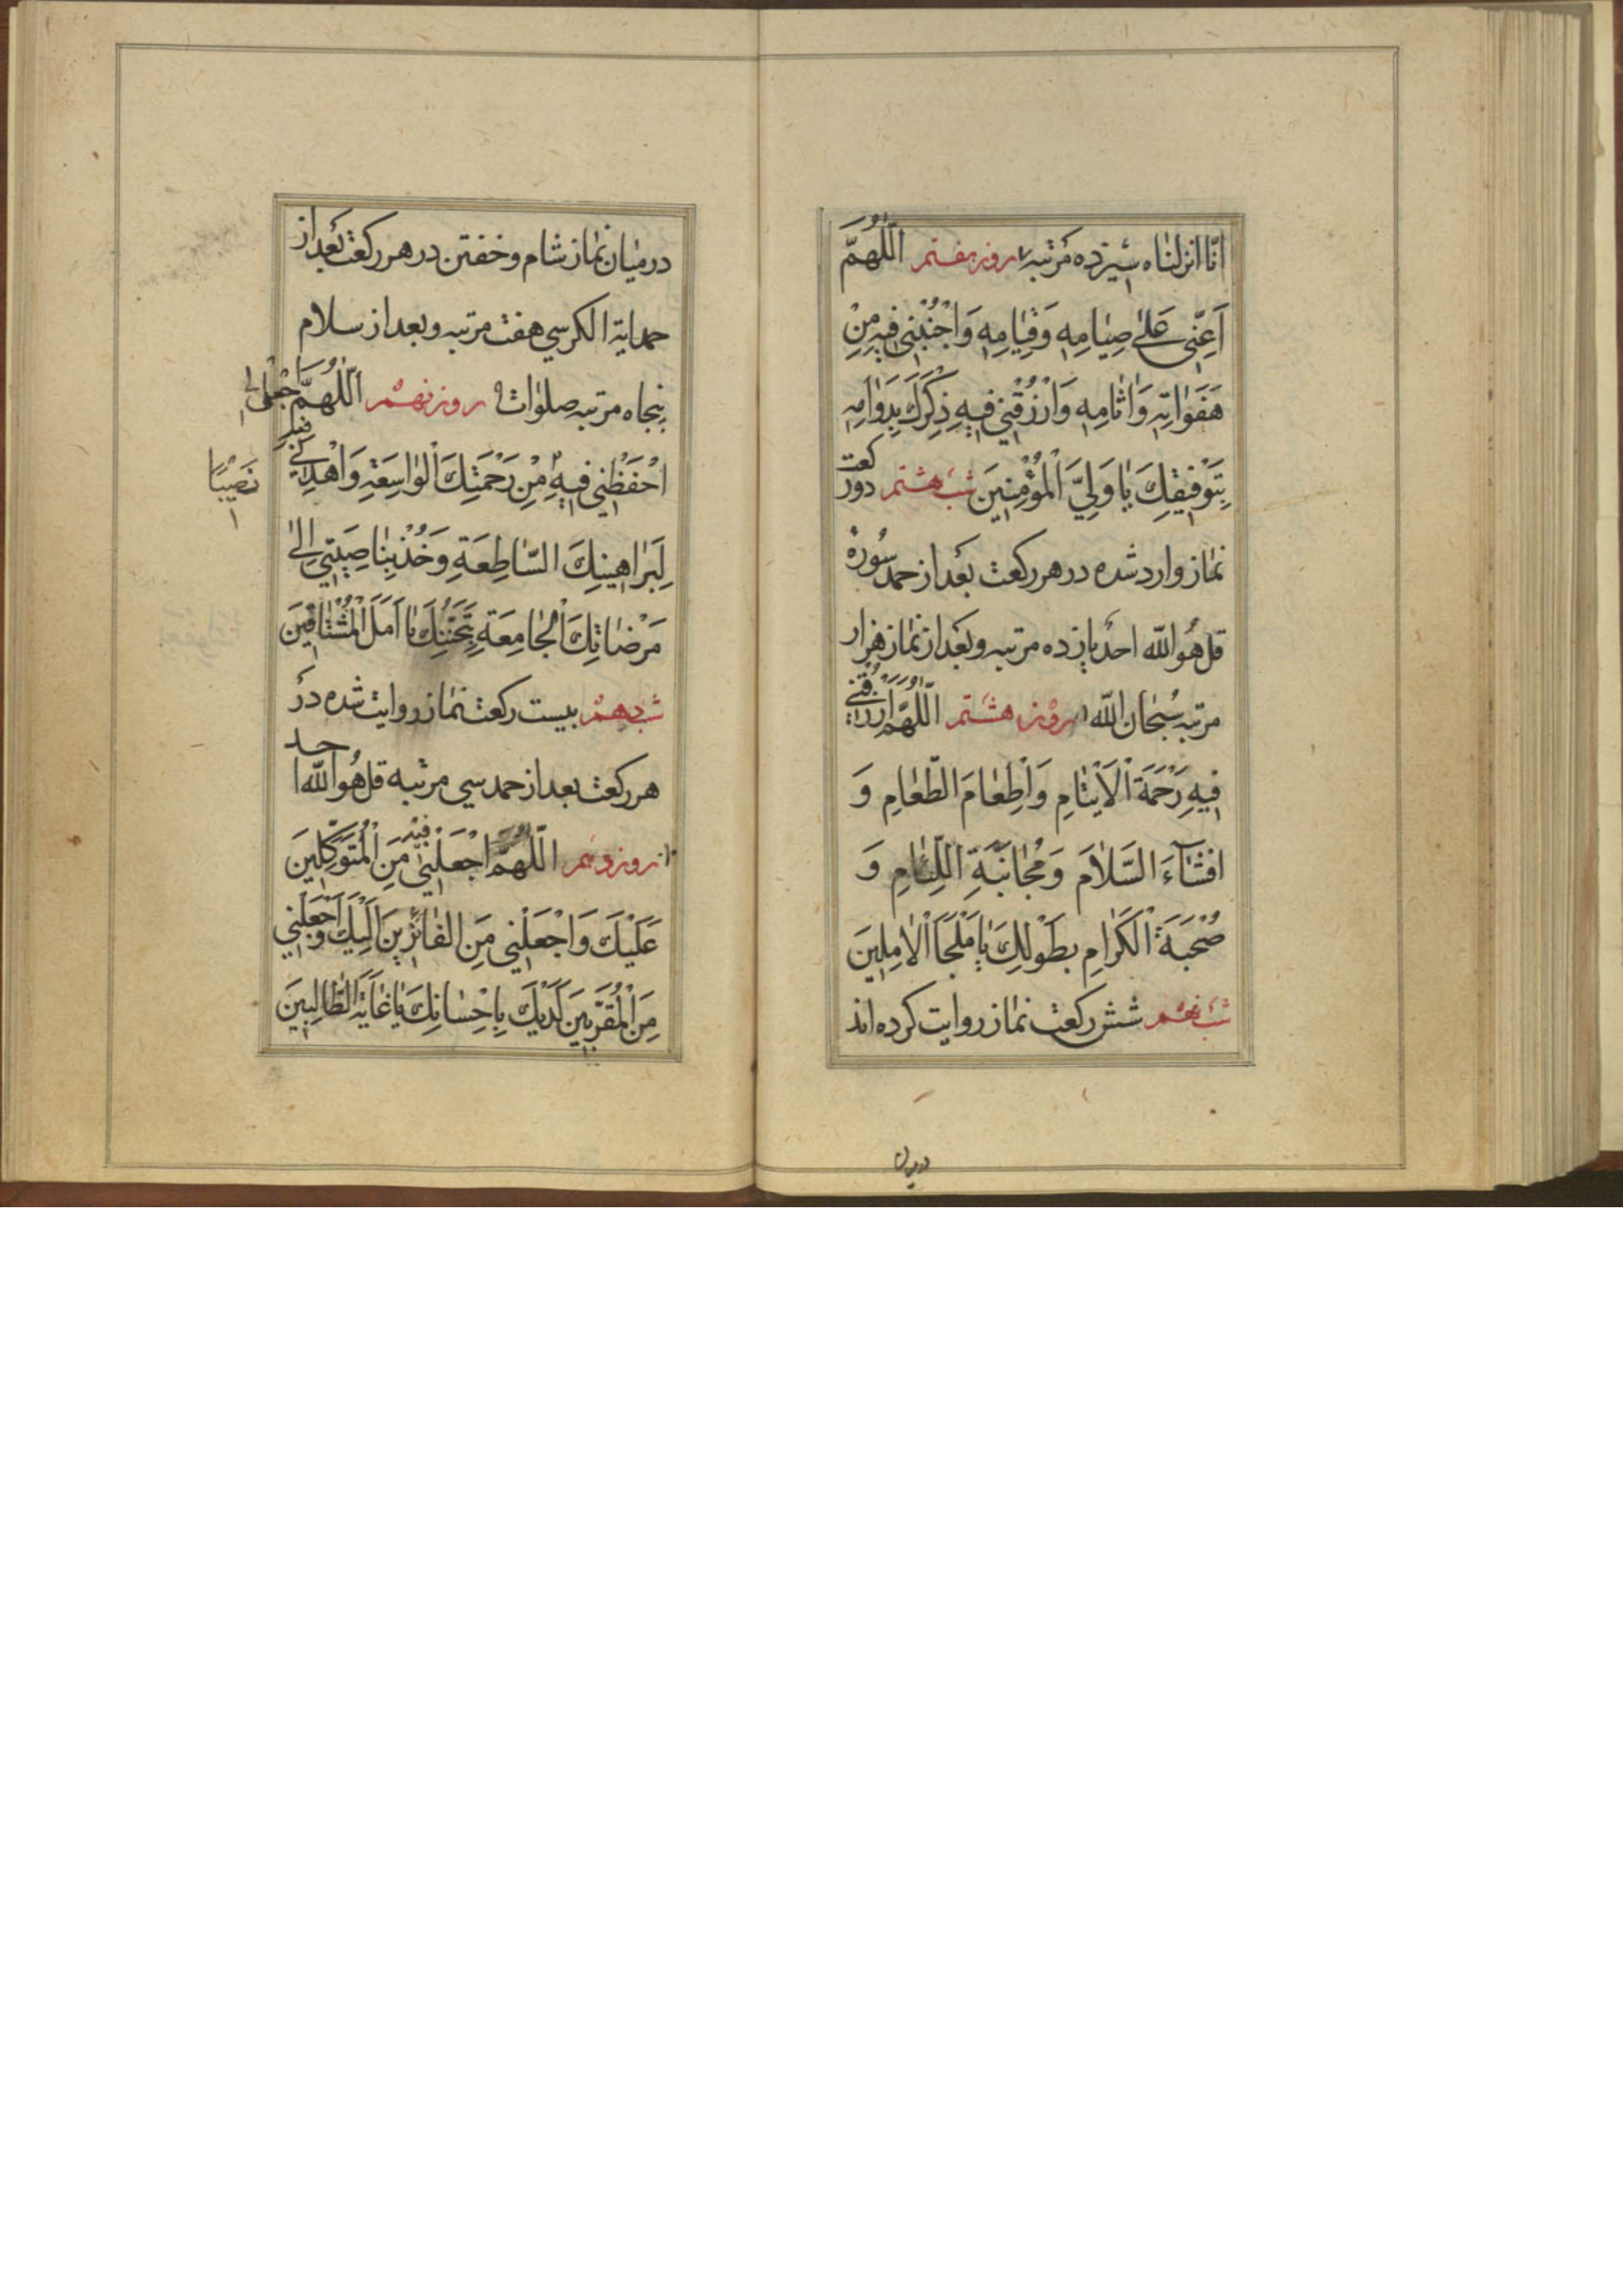 انّا انزلناه سیزده مرتبه ۷ روز هفتم اَللّهُمَّ
اَعِنّی عَلیٰ صِیٰامِهِ وَقِیٰامِهِ وَاجْنُبْنی فیهِ مِنْ
هَفَوٰاتِهِ وَاٰثٰامِهِ وَارْزُقْنی فیهِ ذِکْرَكَ بِدَوٰامِهِ
بِتَوْفیقِكَ یٰا وَلِیَّ الْمُؤْمِنینَ شب هشتم دو رکعت
نماز وارد شده در هر رکعت بعد از حمد سوره
قل هو الله احد یازده مرتبه و بعد از نماز هزار
مرتبه سُبْحان الله ۸ روز هشتم اَللّهُمَّ ارْزُقْنی
فیهِ رَحْمَةَ الْاَیْتٰامِ وَاِطْعٰامَ الطَّعٰامِ وَ
اِفْشٰآءَ السَّلاٰمَ وَمُجٰانَبَةِ اللِّئٰامِ وَ
صُحْبَةَ الْکَرٰامِ بِطَوْلِكَ یٰا مَلْجَاَ الْاٰمِلینَ
شب نهم شش رکعت نماز روایت کرده اند
درمیان
درمیان نماز شام و خفتن در هر رکعت بعد از
حمد ایة الکرسي هفت مرتبه و بعد از سلام
پنجاه مرتبه صلوات ۹ روز نهم اَللّهُمَّ اجْعَلْ لی
فیه
نَصیبًا
احْفَظْنی فیهِ مِنْ رَحْمَتِكَ الْوٰاسِعَةِ وَاهْدِنی
لِبَرٰاهینِكَ السّٰاطِعَةِ وَخُذْ بِنٰاصِیَتی اِلیٰ
مَرْضٰاتِكَ الْجٰامِعَةِ بِمَحَبَّتِكَ یٰا اَمَلَ الْمُشْتٰاقینَ
شب دهم بیست رکعت نماز روایت شده در
هر رکعت بعد از حمد سي مرتبه قل هُو الله احد
۱۰ روز دهم اَللّهُمَّ اجْعَلْنی فیهِ مِنَ الْمُتَوَکِّلینَ
عَلَیْكَ وَاجْعَلْنی مِنَ الْفٰائِزینَ اِلَیْكَ وَاجْعَلْنی
مِنَ الْمُقَرَّبینَ لَدَیْكَ بِاِحْسٰانِكَ یٰا غٰایَةَ الطّٰالِبینَ